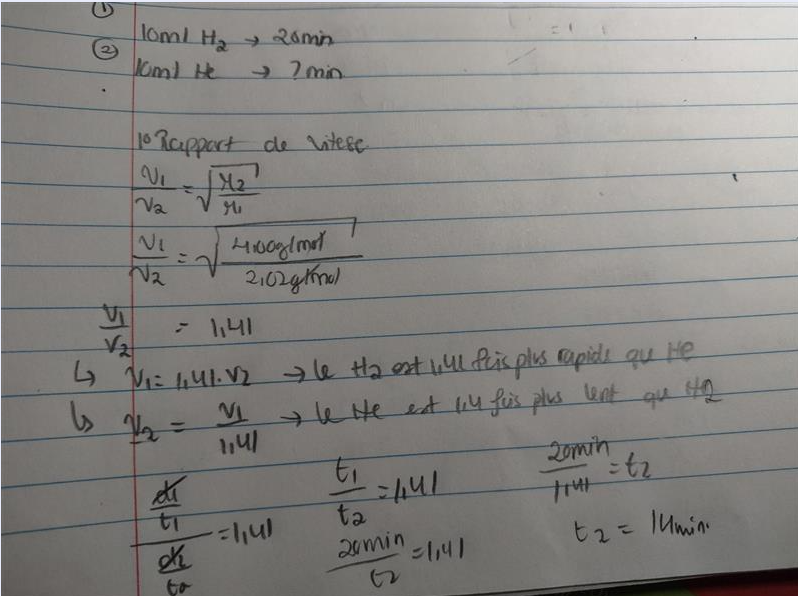 ①
10ml H₂ → 20min
②
10ml He → ? min
1º Rappart de vitese
V₁/V₂ = √(M₂/M₁)
V₁/V₂ = √(4,00g/mol / 2,02g/mol)
V₁/V₂ = 1,41
↳ V₁ = 1,41 · V₂ → le H₂ est 1,41 fois plus rapide que He
↳ V₂ = V₁/1,41 → le He est 1,4 fois plus lent que H2
(d₁/t₁)/(d₂/t₂) = 1,41
t₁/t₂ = 1,41
20min/t₂ = 1,41
20min/1,41 = t₂
t₂ = 14min.